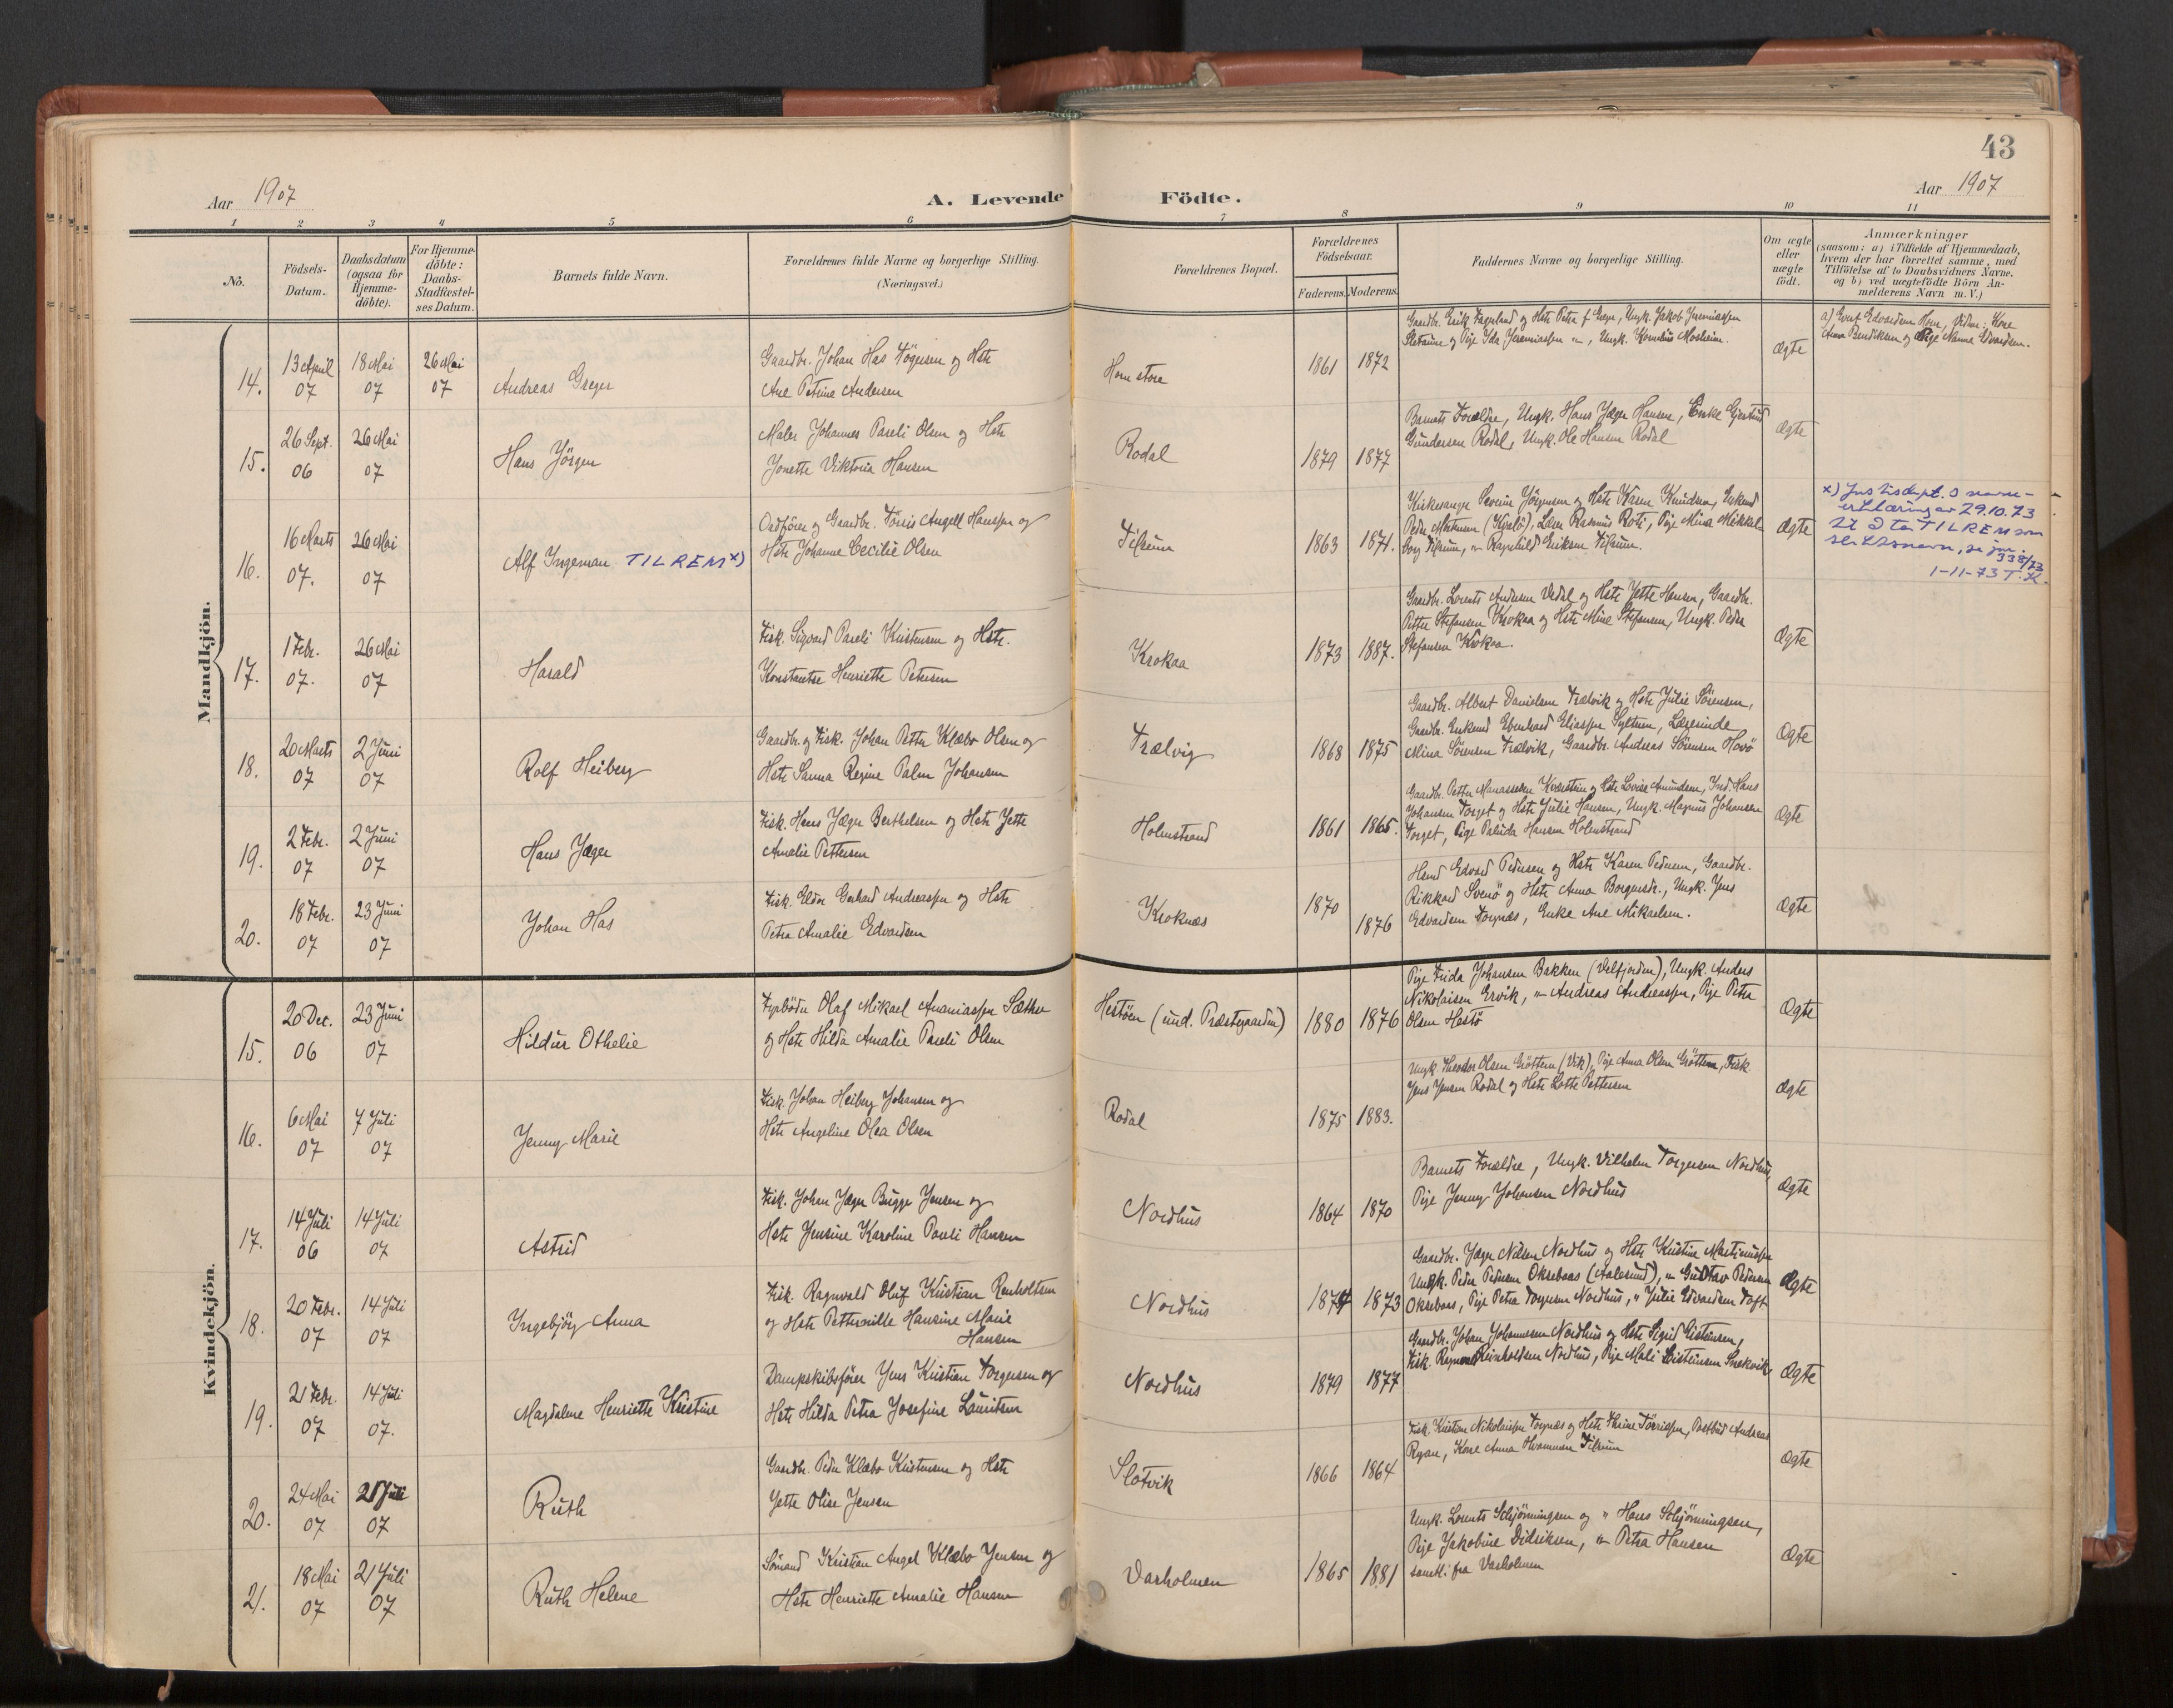 43
Aar 1907
A. Levende Fødte.
Aar 1907
1 2 3 4 5 6 7 8 9 10 11
No.
Fødsels-
Datum.
Daabsdatum
(ogsaa for
Hjemme-
döbte).
For Hjemme-
döbte:
Daabs-
Stadfæstel-
ses Datum.
Barnets fulde Navn.
Forældrenes fulde Navne og borgerlige Stilling.
(Næringsvei.)
Forældrenes Bopæl.
Forældrenes
Födselsaar.
Faderens. Moderens.
Faddernes Navne og borgerlige Stilling.
Om ægte
eller
uægte
födt.
Anmærkninger
(saasom: a) i Tilfælde af Hjemmedaab,
hvem der har forrettet samme, med
Tilföielse af to Daabsvidners Navne.
og b) ved uægtefödte Börn An-
melderens Navn m. V.)
Mandkjön.
14.
13 April
07
18 Mai
07
26 Mai
07
Andreas Greger
Gaardbr. Johan Has Högersen og Hstr
Ane Petrine Andersen
Horn store
1861 1872
Gaardbr. Erik Fagerland og Hstr Petra, Ungk. Jakob Jeremiassen
og Pige Ida Jeremiassen, Ungk. Kornelius Mosheim.
Ægte
a) Evert Edvardsen Horn, Vidner: Kone
Anna Bendiksen og Pige Nanna Edvardsen.
15.
26 Sept.
06
26 Mai
07
Hans Jörgen
Maler Johannes Pareli Olsen og Hstr
Jonette Viktoria Hansen
Rodal
1879 1877
Barnets Forældre, Ungk. Hans Jæger Hansen, Enke Gjertrud
Gundersen Rodal, Ungk. Ole Hansen Rodal
Ægte
16.
16 Marts
07.
26 Mai
07
Alf Ingeman TILREM x)
Ordförer og Gaardbr. Tönis Angell Hanssen og
Hstr Johanne Cecilie Olsen
Tilrum
1863 1871.
Kirkesanger Severin Jörgensen og Hstr Karen Knudsen, Enkemd
Peder Mortensen, Lærer Rasmus Roti, Pige Mina Mikkel-
borg Tilrum, " Ragnhild Eriksen Tilrum.
Ægte
x) Justisdept.s navne-
erklæring av 29.10.73
til å ta TILREM som
slektsnavn, se jnr.
338/73
1-11-73 T.K.
17.
1 Febr.
07.
26 Mai
07
Harald
Fisk. Sigvard Pareli Kristensen og Hstr.
Konstantse Henriette Petersen
Krokaa
1873 1887.
Gaardbr. Lorents Andersen Vedal og Hstr Jette Hansen, Gaardbr.
Petter Stefansen Krokaa og Hstr Mine Stefansen, Ungk. Peder
Stefansen Krokaa.
Ægte
18.
20 Marts
07
2 Juni
07
Rolf Heiberg
Gaardbr. og Fisk. Johan Petter Klæbo Olsen og
Hstr Sanna Regine Palm Johansen
Trælvig
1868 1875
Gaardbr. Albert Danielsen Trælvik og Hstr Julie Sörensen,
Gaardbr. Enkemd Edenhard Eliassen Sylten, Lærerinde
Mina Sörensen Trælvik, Gaardbr. Andreas Sörensen Havö
Ægte
19.
2 Febr.
07
2 Juni
07
Hans Jæger
Fisk. Hans Jæger Berthelsen og Hstr Jette
Amalie Pettersen
Holmstrand
1861 1865.
Gaardbr. Petter Manassesen og Hstr Lovise Amundsen, Ind. Hans
Johansen Torget og Hstr Julie Hansen, Ungk. Magnus Johansen
Torget, Pige Paluda Hansen Holmstrand
Ægte
20.
18 Febr.
07
23 Juni
07
Johan Has
Fisk. Eldor Gerhard Andreassen og Hstr
Petra Amalie Edvardsen
Kroknæs
1870
1876
Hmd Edvard Pedersen og Hstr Karen Pedersen, Gaardbr.
Rikkard Svenö og Hstr Anna, Ungk. Jens
Edvardsen Torgnæs, Enke Ane Mikaelsen.
Ægte
Kvindekjön.
15.
20 Dec.
06
23 Juni
07
Hildur Othelie
Fyrböder Olaf Mikael Ananiassen Sæther
og Hstr Hilda Amalie Pareli Olsen
Hestöen (und. Præstegaarden)
1880 1876
Pige Frida Johansen Bakken (Velfjorden), Ungk. Anders
Nikolaisen Ervik, " Andreas Andreassen, Pige Petra
Olsen Hestö
Ægte
16.
6 Mai
07
7 Juli
07
Jenny Marie
Fisk. Johan Heiberg Johansen og
Hstr Angeline Olea Olsen
Rodal
1875 1883.
Ungk. Theodor Olsen Gröttem (Vik), Pige Anna Olsen Gröttem, Fisk.
Jens Jensen Rodal og Hstr Lotte Pettersen
Ægte
17.
14 Juli
06
14 Juli
07
Astrid
Fisk. Johan Jæger Bugge Jensen og
Hstr Jensine Karoline Pareli Hansen
Nordhus
1864 1870
Barnets Forældre, Ungk. Vilhelm Torgersen Nordhus,
Pige Jenny Johansen Nordhus
Ægte
18.
20 Febr.
07
14 Juli
07
Ingebjörg Anna
Fisk. Ragnvald Oluf Kristian Renholtsen
og Hstr Petternille Hansine Marie
Hansen
Nordhus
1874 1873
Gaardbr. Jæger Nilsen Nordhus og Hstr Kristine Martinussen
Ungk. Peder Pedersen Oksebaas (Aalesund), " Gustav Pedersen
Oksebaas, Pige Petra Torgersen Nordhus, " Julie Edvardsen Toft
Ægte
19.
21 Febr.
07
14 Juli
07.
Magdalene Henriette Kristine
Dampskibsförer Jens Kristian Torgersen og
Hstr Hilda Petra Josefine Lauritsen
Nordhus
1879 1877
Gaardbr. Johan Johannesen Nordhus og Hstr Sigrid Eistensen,
Fisk. Reinholdsen Nordhus, Pige Mali Eisteinsen Snekvik
Ægte
20.
24 Mai
07
21 Juli
07
Ruth
Gaardbr. Peder Klæbo Kristensen og Hstr
Jette Olise Jensen
Slotvik
1866 1864
Fisk. Kristian Nikolaisen Torgnæs og Hstr Thrine Törrissen, Postbud Andreas
Ryan, Kone Anna Tilrum
Ægte
21.
18 Mai
07
21 Juli
07
Ruth Helene
Sömand Kristian Angel Klæbo Jensen og
Hstr Henriette Amalie Hansen
Varholmen
1865 1881
Ungk. Lorents Schjönningsen og " Hans Schjönningsen,
Pige Jakobine Didriksen, " Petra Hansen
samtl. fra Varholmen
Ægte